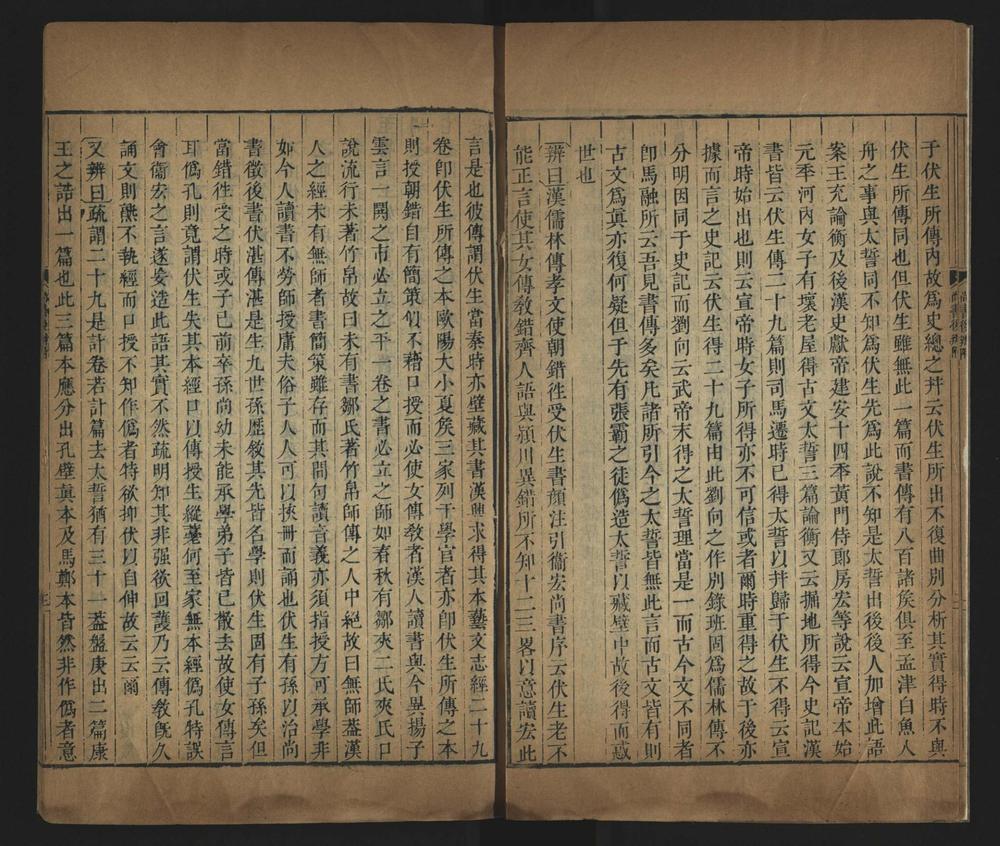 于伏生所傳内故爲史總之幷云伏生所出不復曲别分析其實得時不與
伏生所傳同也但伏生雖無此一篇而書傳有八百諸矦俱至孟津白魚入
舟之事與太誓同不知爲伏生先爲此說不知是太誓出後後人加增此語
案王充論衡及後漢史獻帝建安十四秊黃門侍郞房宏等說云宣帝本始
元秊河内女子有壞老屋得古文太誓三篇論衡又云掘地所得今史記漢
書皆云伏生傳二十九篇則司馬遷時已得太誓㠯幷歸于伏生不得云宣
帝時始出也則云宣帝時女子所得亦不可信或者爾時重得之故于後亦
據而言之史記云伏生得二十九篇由此劉向之作別錄班固爲儒林傳不
分明因同于史記而劉向云武帝末得之太誓理當是一而古今文不同者
卽馬融所云吾見書傳多矣凡諸所引今之太誓皆無此言而古文皆有則
古文爲眞亦復何疑但于先有張霸之徒僞造太誓㠯藏壁中故後得而惑
世也
辨曰漢儒林傳孝文使朝錯往受伏生書顏注引衞宏尚書序云伏生老不
能正言使其女傳教錯齊人語與潁川異錯所不知十二三畧㠯意讀宏此
言是也彼傳謂伏生當秦時亦壁藏其書漢興求得其本藝文志經二十九
卷卽伏生所傳之本歐陽大小夏矦三家列于學官者亦卽伏生所傳之本
則授朝錯自有簡策何不藉口授而必使女傳教者漢人讀書與今異揚子
雲言一鬨之市必立之平一卷之書必立之師如春秋有鄒夾二氏夾氏口
說流行未著竹帛故曰未有書鄒氏著竹帛師傳之人中絕故曰無師葢漢
人之經未有無師者書簡策雖存而其間句讀音義亦須指授方可承學非
如今人讀書不勞師授庸夫俗子人人可㠯挾冊而誦也伏生有孫㠯治尚
書徵後書伏湛傳湛是生九世孫歷敘其先皆名學則伏生固有子孫矣但
當錯往受之時或子已前卒孫尚幼未能承學弟子皆已散去故使女傳言
耳僞孔則竟謂伏生失其本經口㠯傳授生縱耄何至家無本經僞孔特誤
會衞宏之言遂妄造此語其實不然疏明知其非强欲回護乃云傳教旣久
誦文則熟不執經而口授不知作僞者特欲抑伏㠯自伸故云云爾
又辨曰疏謂二十九是計卷若計篇去太誓猶有三十一葢盤庚出二篇康
王之誥出一篇也此三篇本應分出孔壁眞本及馬鄭本皆然非作僞者意